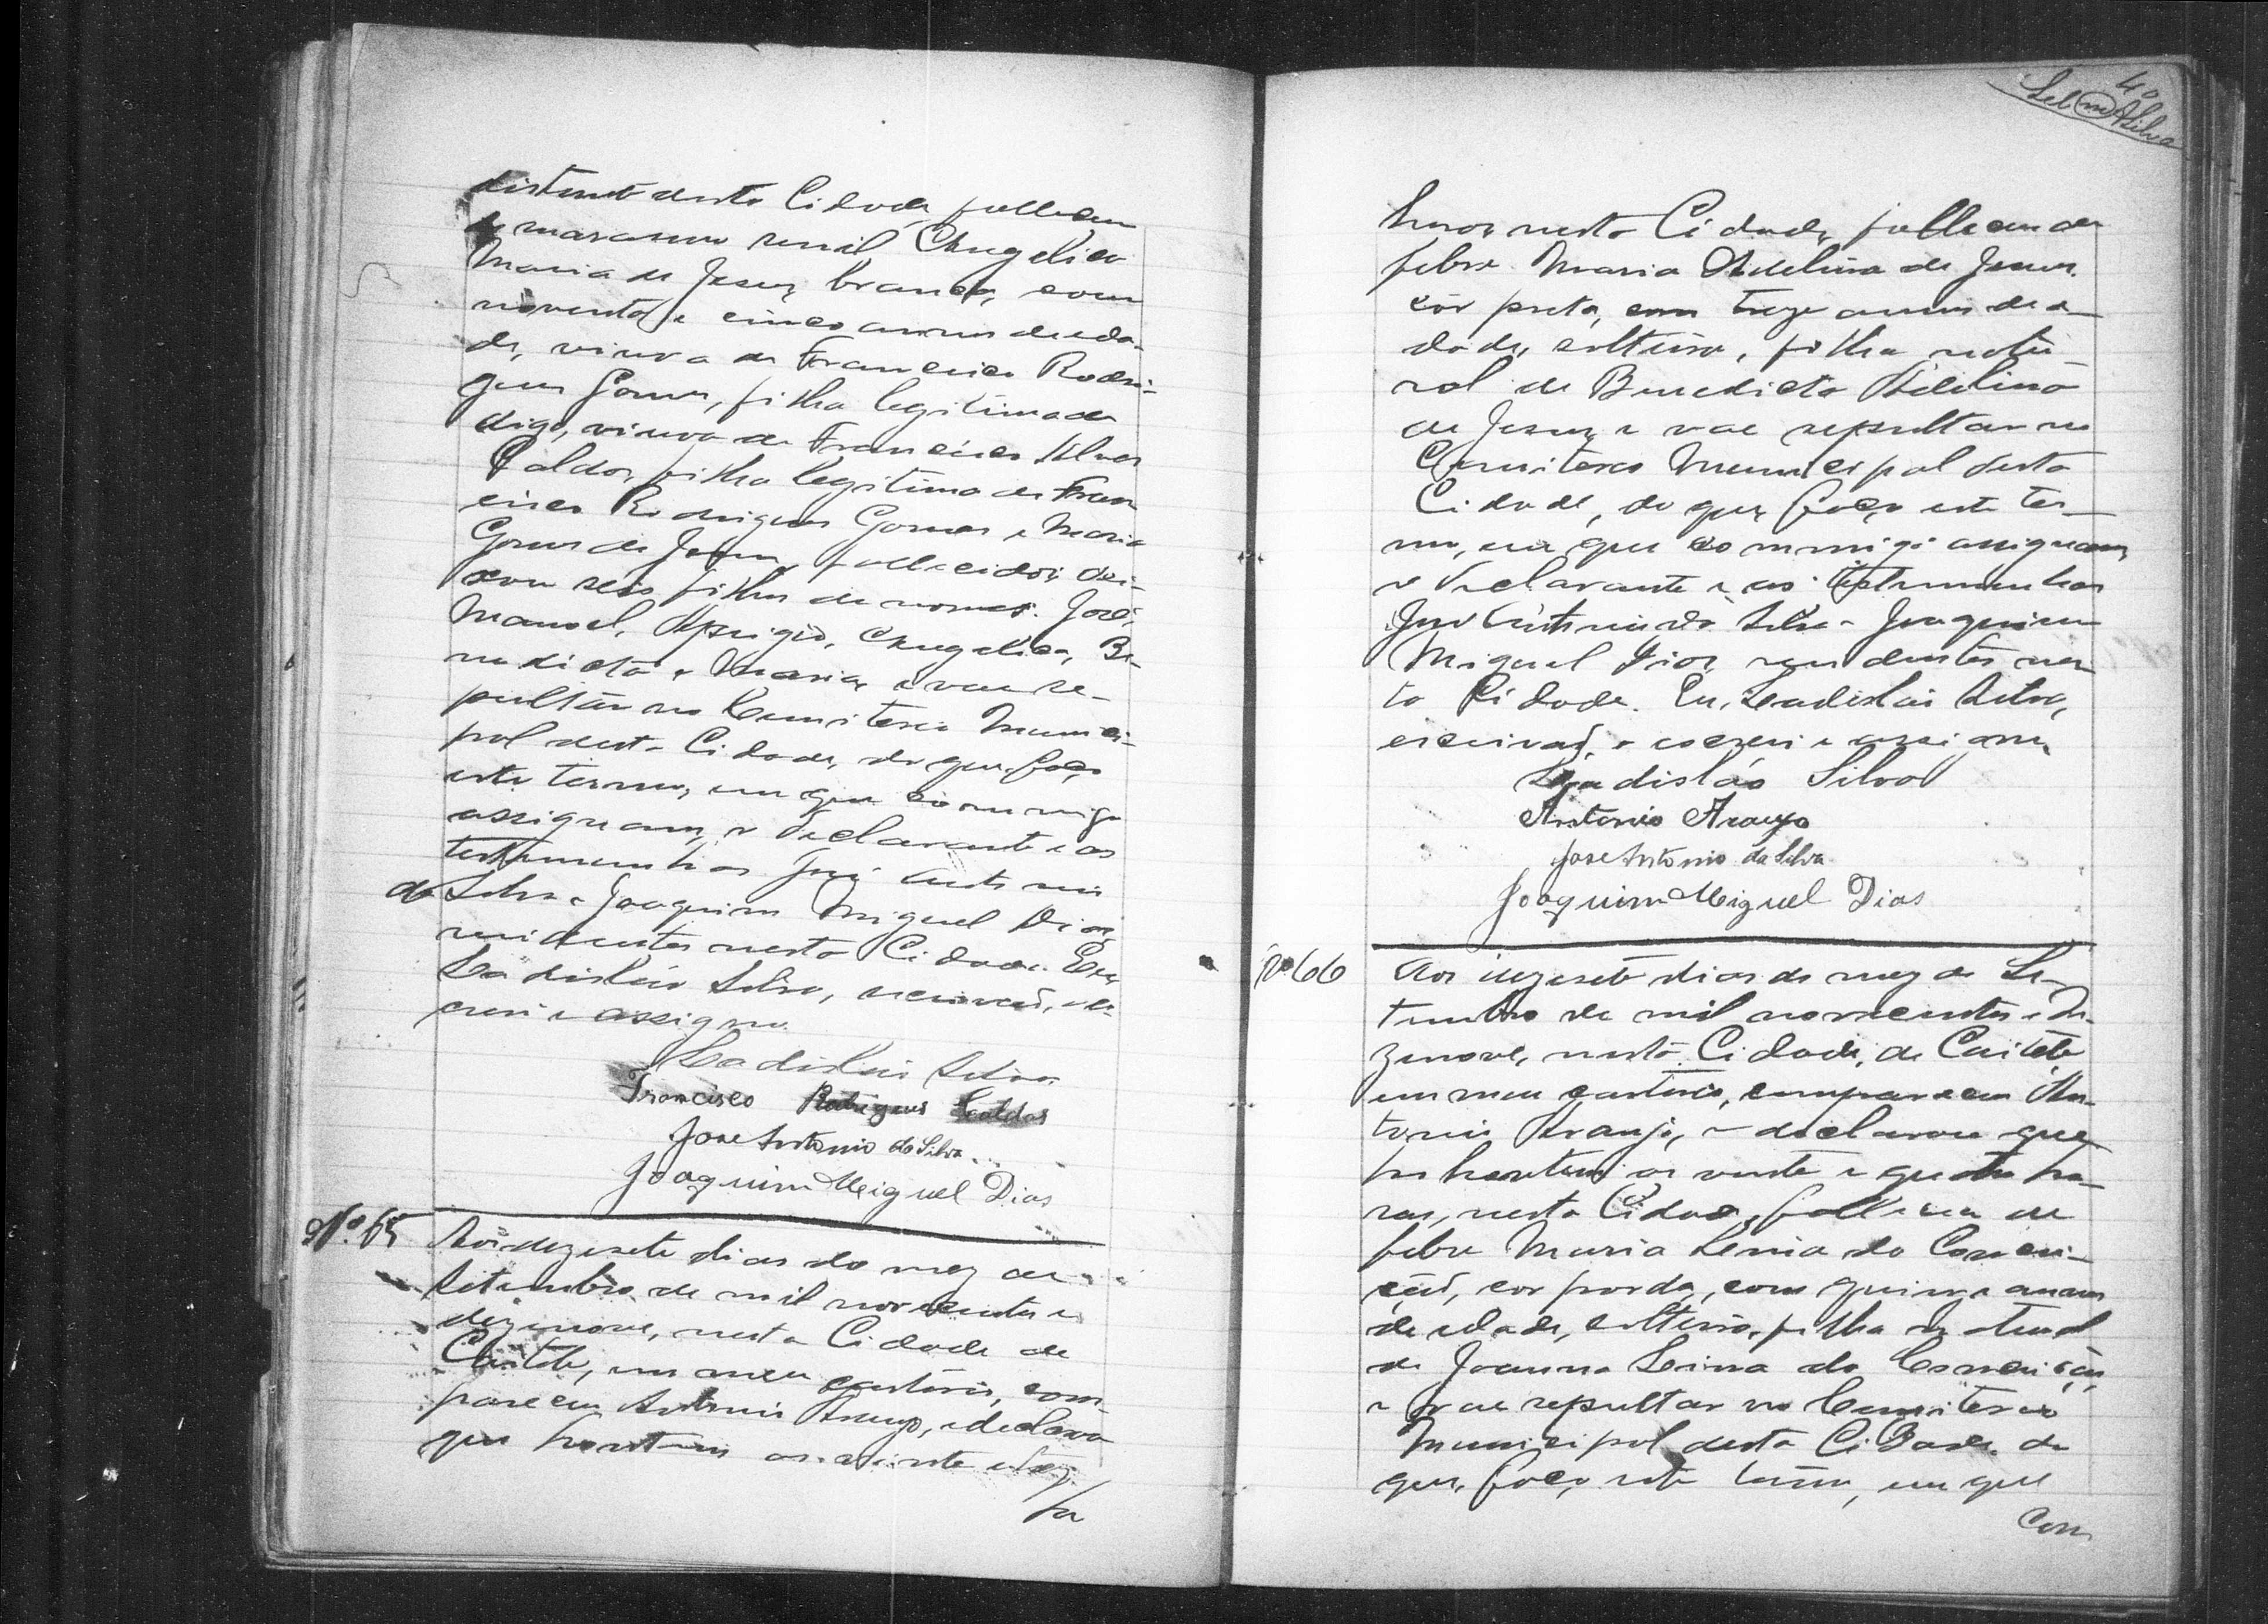 distante desta Cidade, falleceu
de marasmo senil Angelica
Maria de Jesus, branca, com
noventa e cinco annos de eda-
de, viuva de Francisco Rodri-
gues Gomes, filha legitima de
digo, viuva de Francisco Alves
Caldas, filha legitima de Fran
cisco Rodrigues Gomes e Maria
Gomes de Jesus, fallecidos, dei-
xou seis filhos de nomes: José,
Manoel, Aprigio, Angelica, Be-
nedicta e Maria, e vae se-
pultar no Cemiterio Munici-
pal desta Cidade, do que faço
este termo, em que commigo
assignam, o declarante e as
testemunhas José Antonio
da Silva e Joaquim Miguel Dias,
residentes nesta Cidade. Eu,
Ladisláo Silva, escrivão, o es-
crevi e assigno.
Ladisláo Silva
Francisco Rodrigues Caldas
Jose Antonio da Silva
Joaquim Miguel Dias
Nº 65 Aos dezesete dias do mez de
Setembro de mil novecentos e
dezenove, nesta Cidade de
Caiteté, em meu cartorio, com-
pareceu Antonio Araujo, e declarou
que hontem as vinte e
ho
40
Silva
horas nesta Cidade, falleceu de
febre Maria Adelina de Jesus,
côr preta, com treze annos de e-
dade, solteira, filha natu-
ral de Benedicta Adelina
de Jesus, e vae sepultar no
Cemiterio Municipal desta
Cidade, do que, faço este ter-
mo, em que commigo assignam,
o declarante e as testemunhas
José Antonio da Silva e Joaquim
Miguel Dias, residentes nes-
ta Cidade. Eu, Ladisláo Silva,
escrivão, o escrevi e assigno.
Ladisláo Silva
Antonio Araujo
Jose Antonio da Silva
Joaquim Miguel Dias
Nº 66 Aos dezesete dias do mez de Se-
tembro de mil novecentos e de-
zenove, nesta Cidade, de Caiteté
em meu cartorio, compareceu An-
tonio Araujo, e declarou que
foi hontem as vinte e quatro ho-
ras, nesta Cidade, falleceu de
febre Maria Lina da Concei-
ção, cor parda, com quinze annos
de edade, solteira, filha natural
de Joanna Lina da Conceição,
e vae sepultar no Cemiterio
Municipal desta Cidade, do
que, faço este termo, em que
com